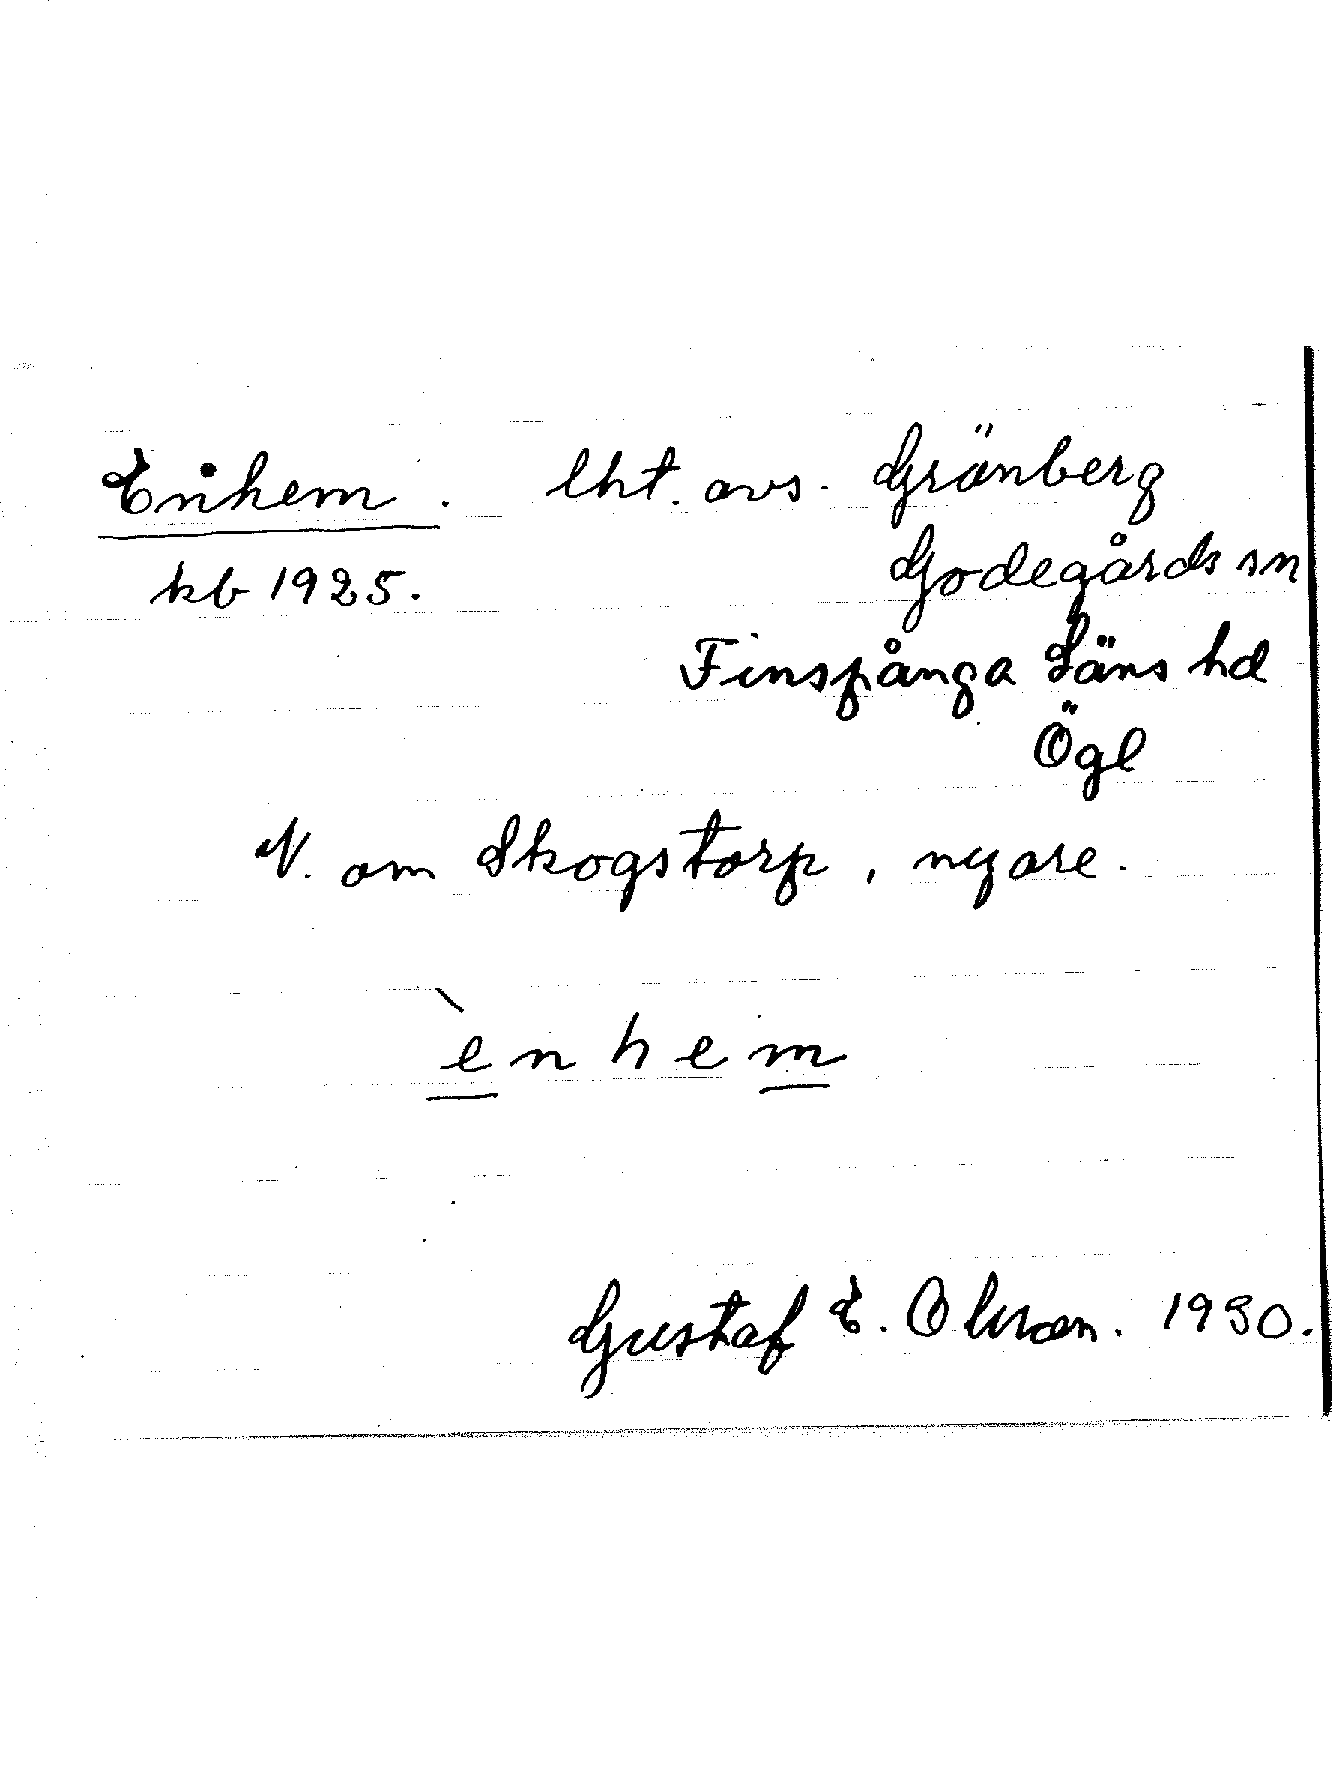 Enhem. lht. avs. Grönberg
kb 1925. Godegårds sn
Finspånga Läns hd
Ögl
N. om Skogstorp, nyare.
ènhem
Gustaf E. Olsson. 1930.